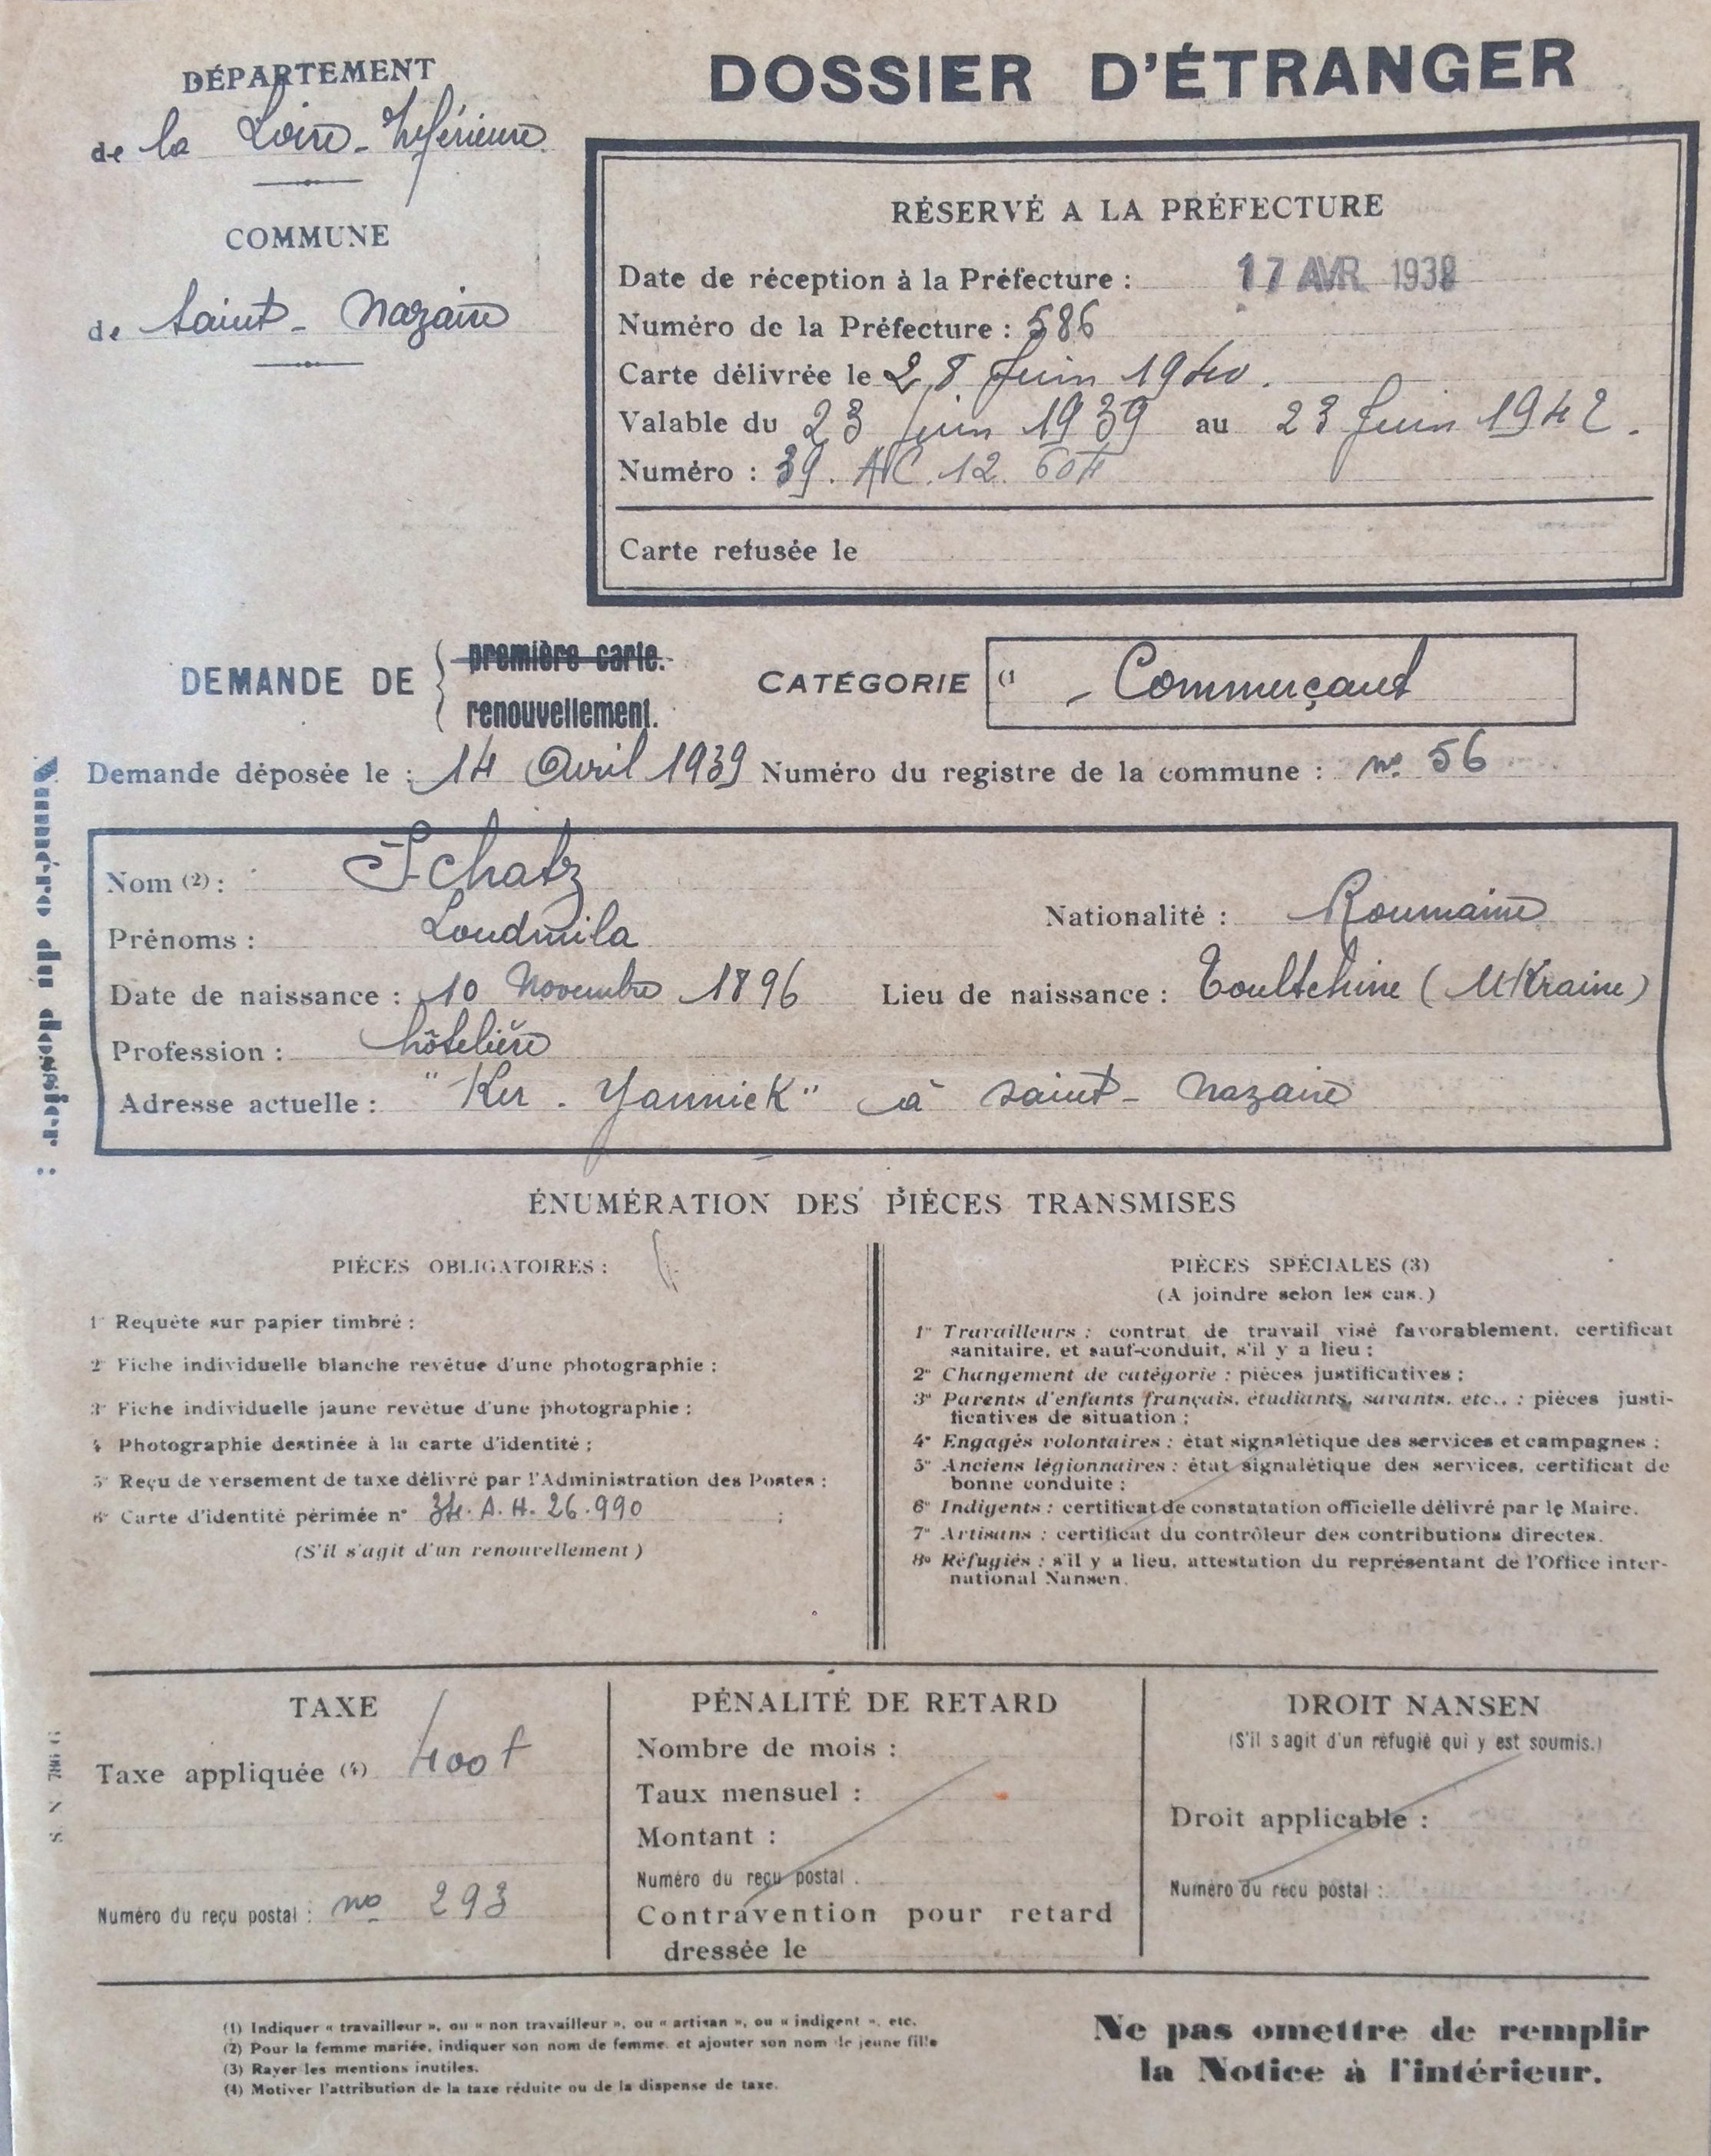 DÉPARTEMENT
de la Loire-Inférieure
COMMUNE
de Saint-Nazaire
DOSSIER D'ÉTRANGER
RÉSERVÉ A LA PRÉFECTURE
Date de réception à la Préfecture : 17 AVR 1939
Numéro de la Préfecture : 586
Carte délivrée le 28 Juin 1940.
Valable du 23 juin 1939 au 23 Juin 1942.
Numéro : 39. AC. 12.
Carte refusée le
DEMANDE DE
première carte.
renouvellement.
CATÉGORIE (1 - Commerçant
Demande déposée le : 14 Avril 1939 Numéro du registre de la commune : no 56
Numéro du dossier :
Nom (2) : Schatz
Prénoms : Loudmila
Nationalité : Roumaine
Date de naissance : 10 Novembre 1896 Lieu de naissance : Toultchine (Ukraine)
Profession : hôtelière
Adresse actuelle : "Ker-Yannick" à Saint-Nazaire
ÉNUMÉRATION DES PIÈCES TRANSMISES
PIÈCES OBLIGATOIRES :
1° Requête sur papier timbré :
2° Fiche individuelle blanche revêtue d'une photographie ;
3° Fiche individuelle jaune revêtue d'une photographie ;
4 Photographie destinée à la carte d'identité ;
5° Reçu de versement de taxe délivré par l'Administration des Postes ;
6° Carte d'identité périmée n° 34. A. H. 26.990 ;
(S'il s'agit d'un renouvellement )
PIÈCES SPÉCIALES (3)
(A joindre selon les cas.)
1° Travailleurs : contrat de travail visé favorablement, certificat
sanitaire, et sauf-conduit, s'il y a lieu ;
2° Changement de catégorie : pièces justificatives ;
3° Parents d'enfants français, étudiants, savants, etc.. : pièces justi-
ficatives de situation ;
4° Engagés volontaires : état signalétique des services et campagnes ;
5° Anciens légionnaires : état signalétique des services, certificat de
bonne conduite ;
6° Indigents : certificat de constatation officielle délivré par le Maire.
7° Artisans : certificat du contrôleur des contributions directes.
8° Réfugiés : s'il y a lieu, attestation du représentant de l'Office inter-
national Nansen.
TAXE
Taxe appliquée (4) 400 f
Numéro du reçu postal : no 293
PÉNALITÉ DE RETARD
Nombre de mois :
Taux mensuel :
Montant :
Numéro du reçu postal .
Contravention pour retard
dressée le
DROIT NANSEN
(S'il s'agit d'un réfugié qui y est soumis.)
Droit applicable :
Numéro du recu postal :
(1) Indiquer « travailleur », ou « non travailleur », ou « artisan », ou « indigent », etc.
(2) Pour la femme mariée, indiquer son nom de femme, et ajouter son nom de jeune fille
(3) Rayer les mentions inutiles.
(4) Motiver l'attribution de la taxe réduite ou de la dispense de taxe.
Ne pas omettre de remplir
la Notice à l'intérieur.